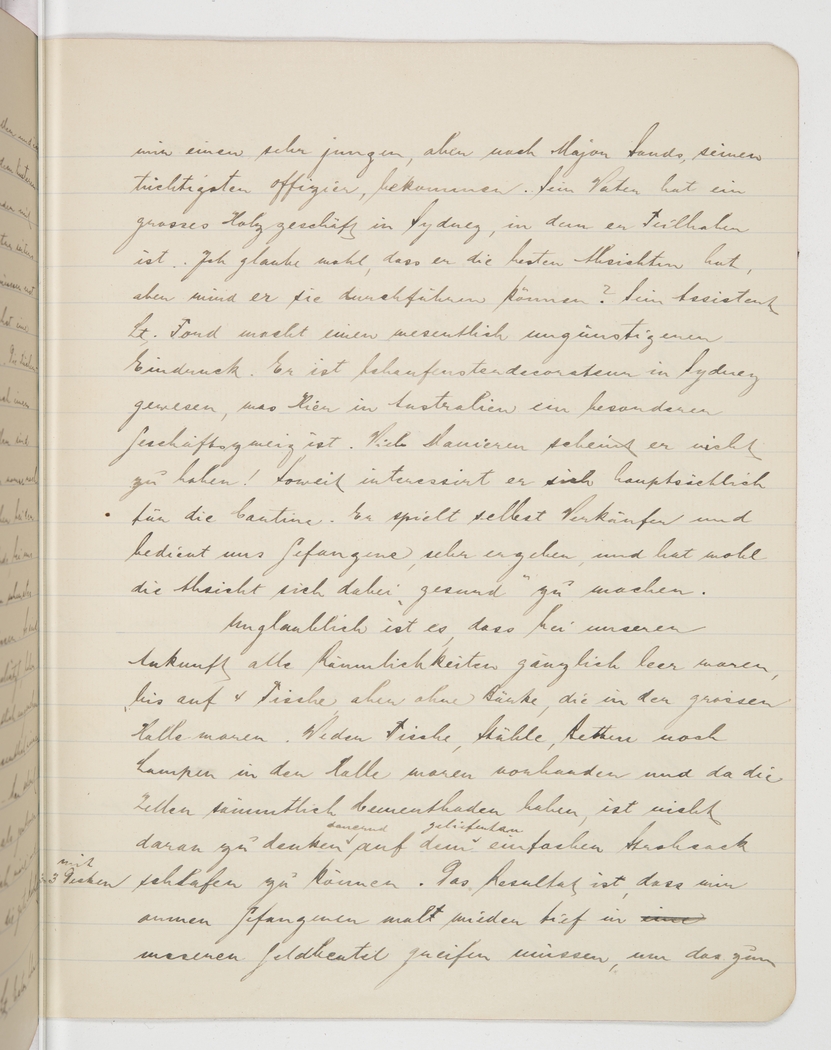 wir einen sehr jungen, aber nach Major Sands, seinen
tüchtigsten Offizier, bekommen. Sein Vater hat ein
grosses Holzgeschäft in Sydney, in dem er Teilhaber
ist. Ich glaube wohl, dass er die besten Absichten hat,
aber wird er sie durchführen können? Sein Assistent
Lt. Ford macht einen wesentlich ungünstigeren
Eindruck. Er ist Schaufensterdecorateur in Sydney
gewesen, was hier in Australien ein besonderer
Geschäftszweig ist. Viele Manieren scheint er nicht
zu haben! Soweit interessirt er sich hauptsächlich
für die Cantine. Er spielt selbst Verkäufer und
bedient uns Gefangene, sehr ergeben, und hat wohl
die Absicht sich dabei „gesund" zu machen.
Unglaublich ist es, dass bei unserer
Ankunft alle Räumlichkeiten gänzlich leer waren,
bis auf 4 Tische aber ohne Bänke, die in der grossen
Halle waren. Weder Tische, Stühle, Betten noch
Lampen in der Halle waren vorhanden und da die
Zellen sämmtlich Cementboden haben, ist nicht
dauernd gelieferten
daran zu denken auf dem einfachen Strohsack
mit
3 Decken schlafen zu können. Das Resultat ist, dass wir
armen Gefangenen mal wieder tief in eine
unseren Geldbeutel greifen müssen, um das zum